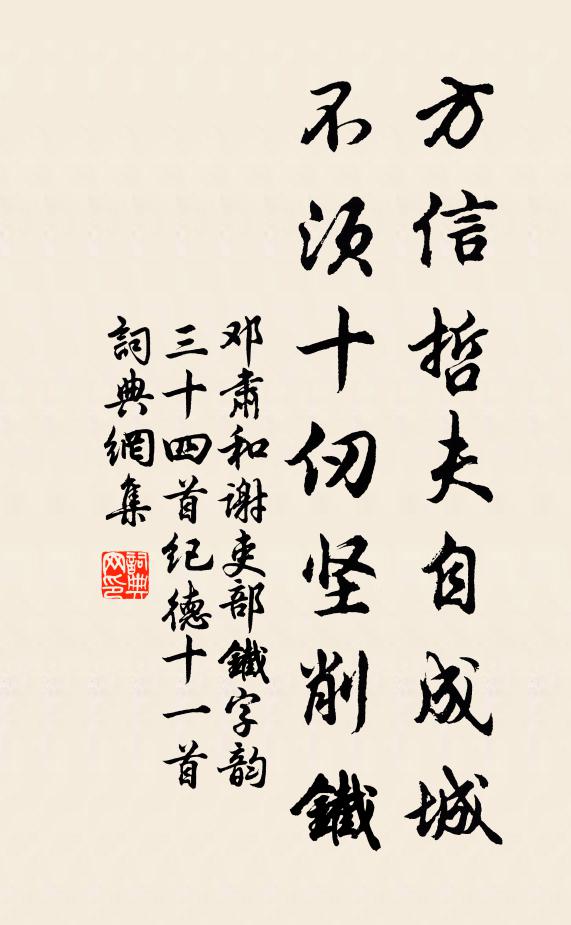 方信哲夫自成城
不须十仞坚削鐵
邓肅和谢吏部鐵字韵
三十四首纪德十一首
詞典網集
詞典网印